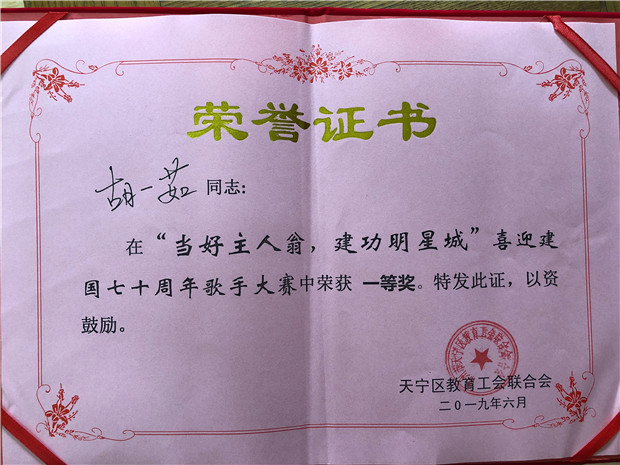 荣誉证书
胡一茹 同志：
在“当好主人翁，建功明星城”喜迎建
国七十周年歌手大赛中荣获 一等奖。特发此证，以资
鼓励。
天宁区教育工会联合会
二〇一九年六月